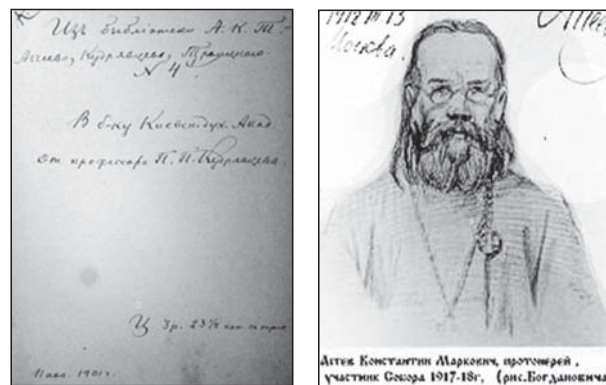 Изъ библіотеки А. К. Т.-
Аггеева, Кудрявцева, Троицкаго.
N 4
В б-ку Киев. дух. Акад.
от профессора П. П. Кудрявцева.
Ц 3 р. 23 1/2 коп
1901 г.
1917 III 13
Москва.
Аггеев Константин Маркович, протоиерей,
участник Собора 1917-18г. (рис.Богдановича